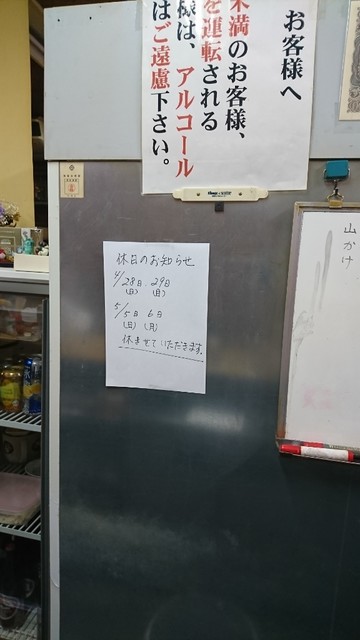 お客様へ
未満のお客様、
を運転される
様は、アルコール
はご遠慮下さい。
休日のお知らせ
4/28日 29日
(日) (月)
5/5日 6日
(日) (月)
休ませていただきます。
山かけ